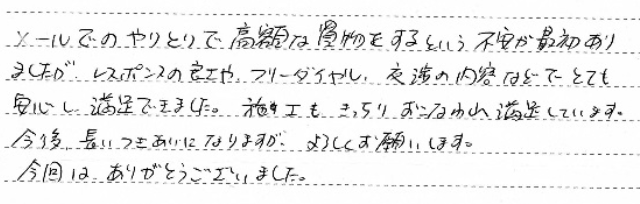 メールでのやりとりで高額な買物をするという不安が最初あり
ましたが、レスポンスの良さや、フリーダイヤル、交渉の内容などでとても
安心し満足できました。施工もきっちりおこなわれ満足しています。
今後、長いつきあいになりますが、よろしくお願いします。
今回は、ありがとうございました。